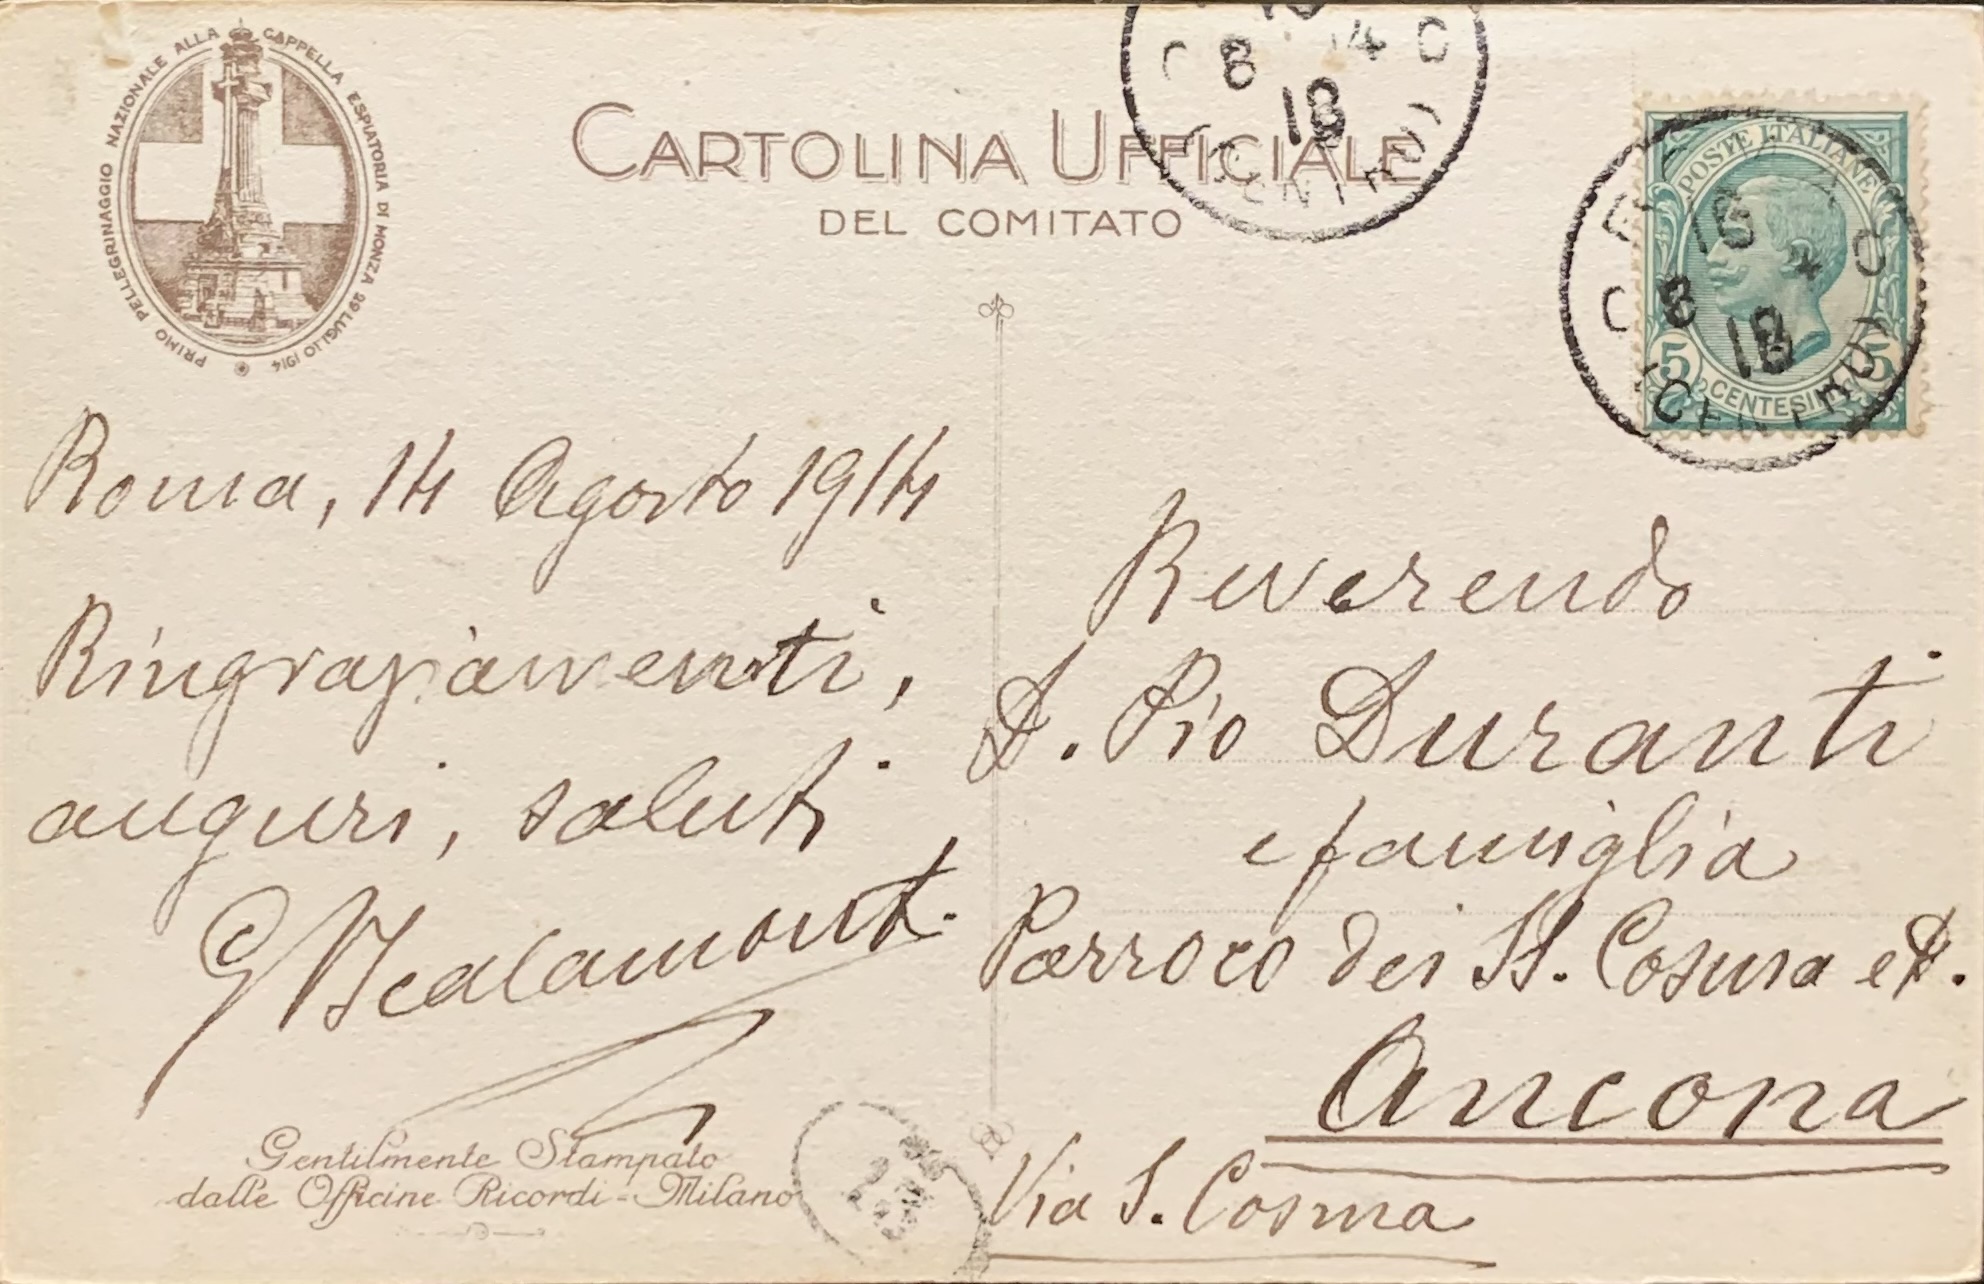 PRIMO PELLEGRINAGGIO NAZIONALE ALLA CAPPELLA ESPIATORIA DI MONZA 29 LUGLIO 1914
CARTOLINA UFFICIALE
DEL COMITATO
8 14
18
(CENTRO)
POSTE ITALIANE
16
8
18
5 CENTESIMI 5
(CENTRO)
Roma, 14 Agosto 1914
Ringraziamenti,
auguri, saluti
G Scalamonti
Reverendo
D. Pio Duranti
e famiglia
Parroco dei SS. Cosma e D.
Ancona
Via S. Cosma
Gentilmente Stampato
dalle Officine Ricordi - Milano